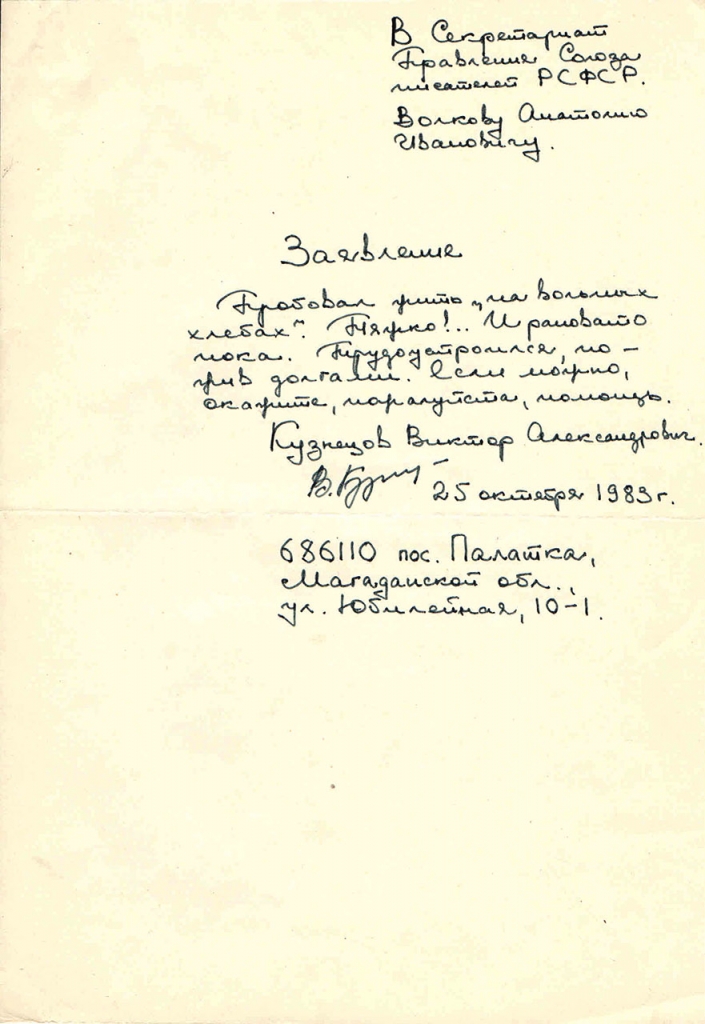 В Секретариат
Правления Союза
писателей РСФСР.
Волкову Анатолию
Ивановичу.
Заявление
Пробовал жить „на вольных
хлебах". Тяжко!.. И рановато
пока. Трудоустроился, по-
жив долгами. Если можно,
окажите, пожалуйста, помощь.
Кузнецов Виктор Александрович.
25 октября 1983 г.
686110 пос. Палатка,
Магаданской обл.,
ул. Юбилейная, 10-1.